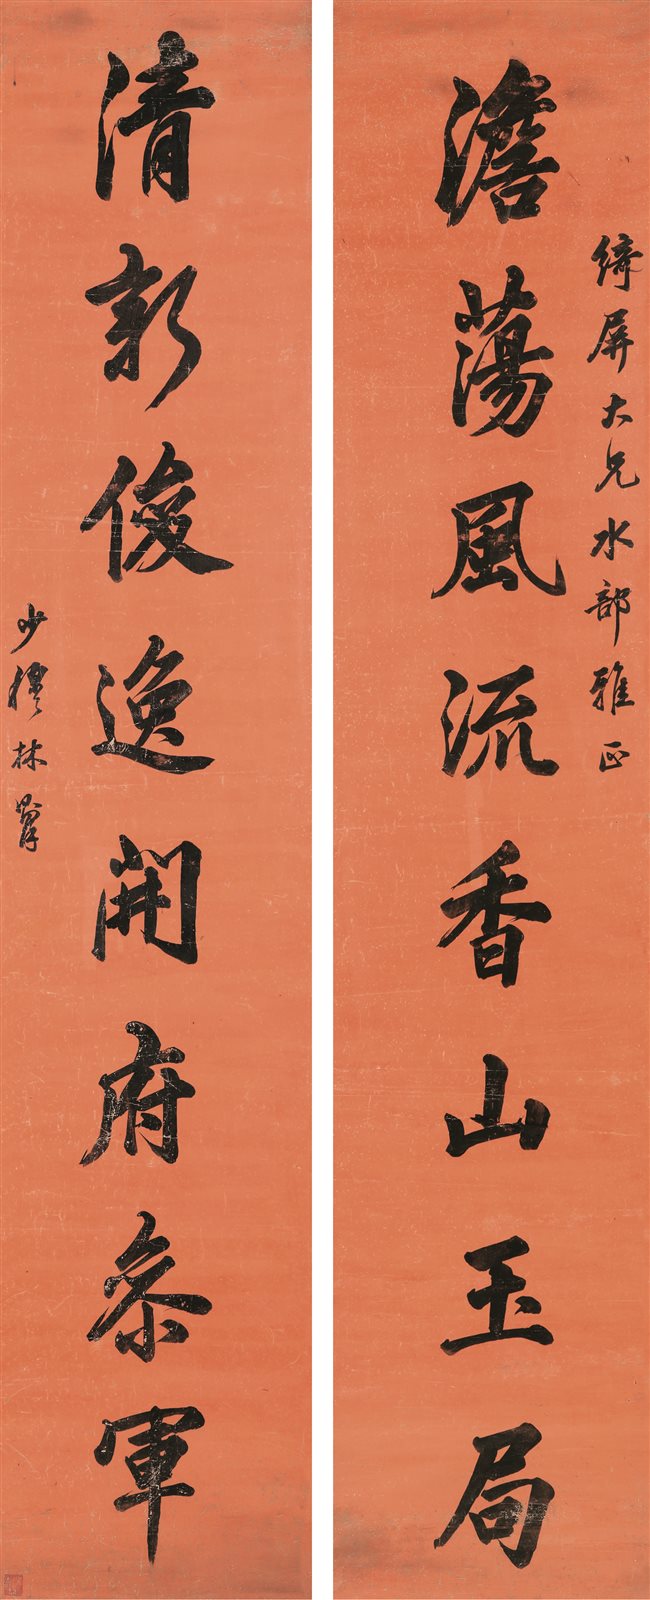 綺屏大兄水部雅正
澹蕩風流香山玉局
清新俊逸開府参軍
少穆林